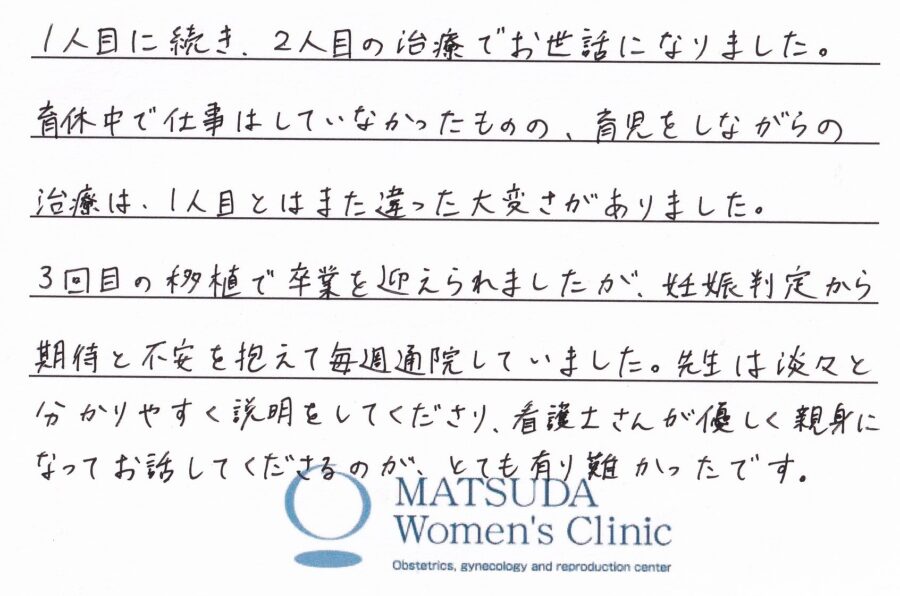 1人目に続き、2人目の治療でお世話になりました。
育休中で仕事はしていなかったものの、育児をしながらの
治療は、1人目とはまた違った大変さがありました。
3回目の移植で卒業を迎えられましたが、妊娠判定から
期待と不安を抱えて毎週通院していました。先生は淡々と
分かりやすく説明をしてくださり、看護士さんが優しく親身に
なってお話してくださるのが、とても有り難かったです。
MATSUDA
Women's Clinic
Obstetrics, gynecology and reproduction center